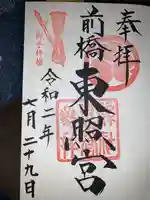 奉拝
前橋
東照宮
令和二年
七月二十九日